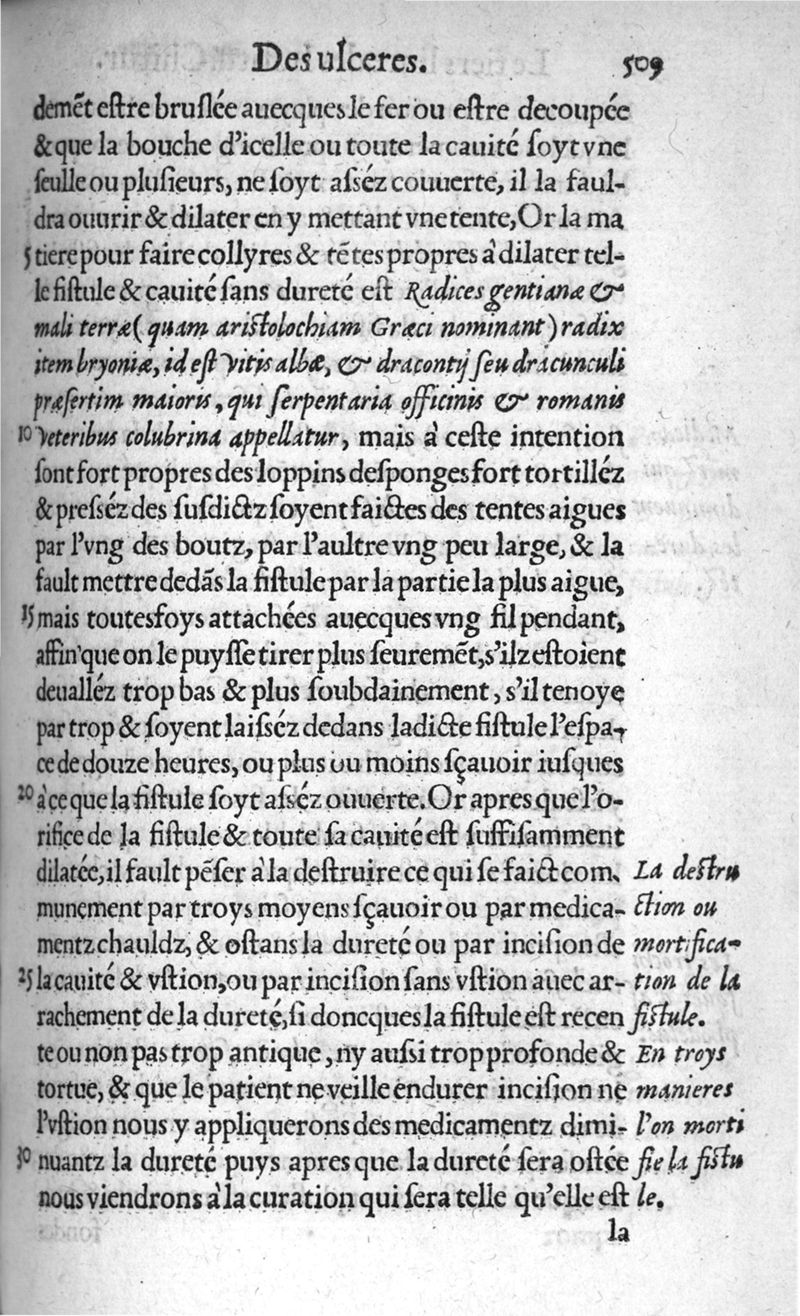 Des ulceres. 509
demẽt eſtre bruſlée auecques le fer ou eſtre decoupée
& que la bouche d'icelle ou toute la cauité ſoyt vne
ſeulle ou pluſieurs, ne ſoyt aſséz couuerte, il la faul-
dra ouurir & dilater en y mettant vne tente, Or la ma
5 tiere pour faire collyres & tẽtes propres à dilater tel-
le fiſtule & cauité ſans dureté eſt Radices gentianæ &
mali terræ ( quam ariſtolochiam Græci nominant ) radix
item bryoniæ, id eſt Vitis albæ, & dracontij ſeu dracunculi
præſertim maioris, qui ſerpentaria officinis & romanis
10 Veteribus colubrina appellatur, mais à ceſte intention
ſont fort propres des loppins deſponges fort tortilléz
& preſséz des ſuſdictz ſoyent faictes des tentes aigues
par l'vng des boutz, par l'aultre vng peu large, & la
fault mettre dedãs la fiſtule par la partie la plus aigue,
15 mais toutesfoys attachées auecques vng fil pendant,
affin que on le puyſſe tirer plus ſeuremẽt, s'ilz eſtoient
deualléz trop bas & plus ſoubdainement, s'il tenoye
par trop & ſoyent laiſséz dedans ladicte fiſtule l'eſpa-
ce de douze heures, ou plus ou moins ſçauoir iuſques
20 à ce que la fiſtule ſoyt aſséz ouuerte. Or apres que l'o-
rifice de la fiſtule & toute ſa cauité eſt ſuffiſamment
dilatée, il fault pẽſer à la deſtruire ce qui ſe faict com- La deſtru
munement par troys moyens ſçauoir ou par medica- ction ou
mentz chauldz, & oſtans la dureté ou par inciſion de mortifica-
25 la cauité & vſtion, ou par inciſion ſans vſtion auec ar- tion de la
rachement de la dureté, ſi doncques la fiſtule eſt recen fiſtule.
te ou non pas trop antique, ny auſsi trop profonde & En troys
tortue, & que le patient ne veille endurer inciſion ne manieres
l'vſtion nous y appliquerons des medicamentz dimi- l'on morti
30 nuantz la dureté puys apres que la dureté ſera oſtée fie la fiſtu
nous viendrons à la curation qui ſera telle qu'elle eſt le.
la